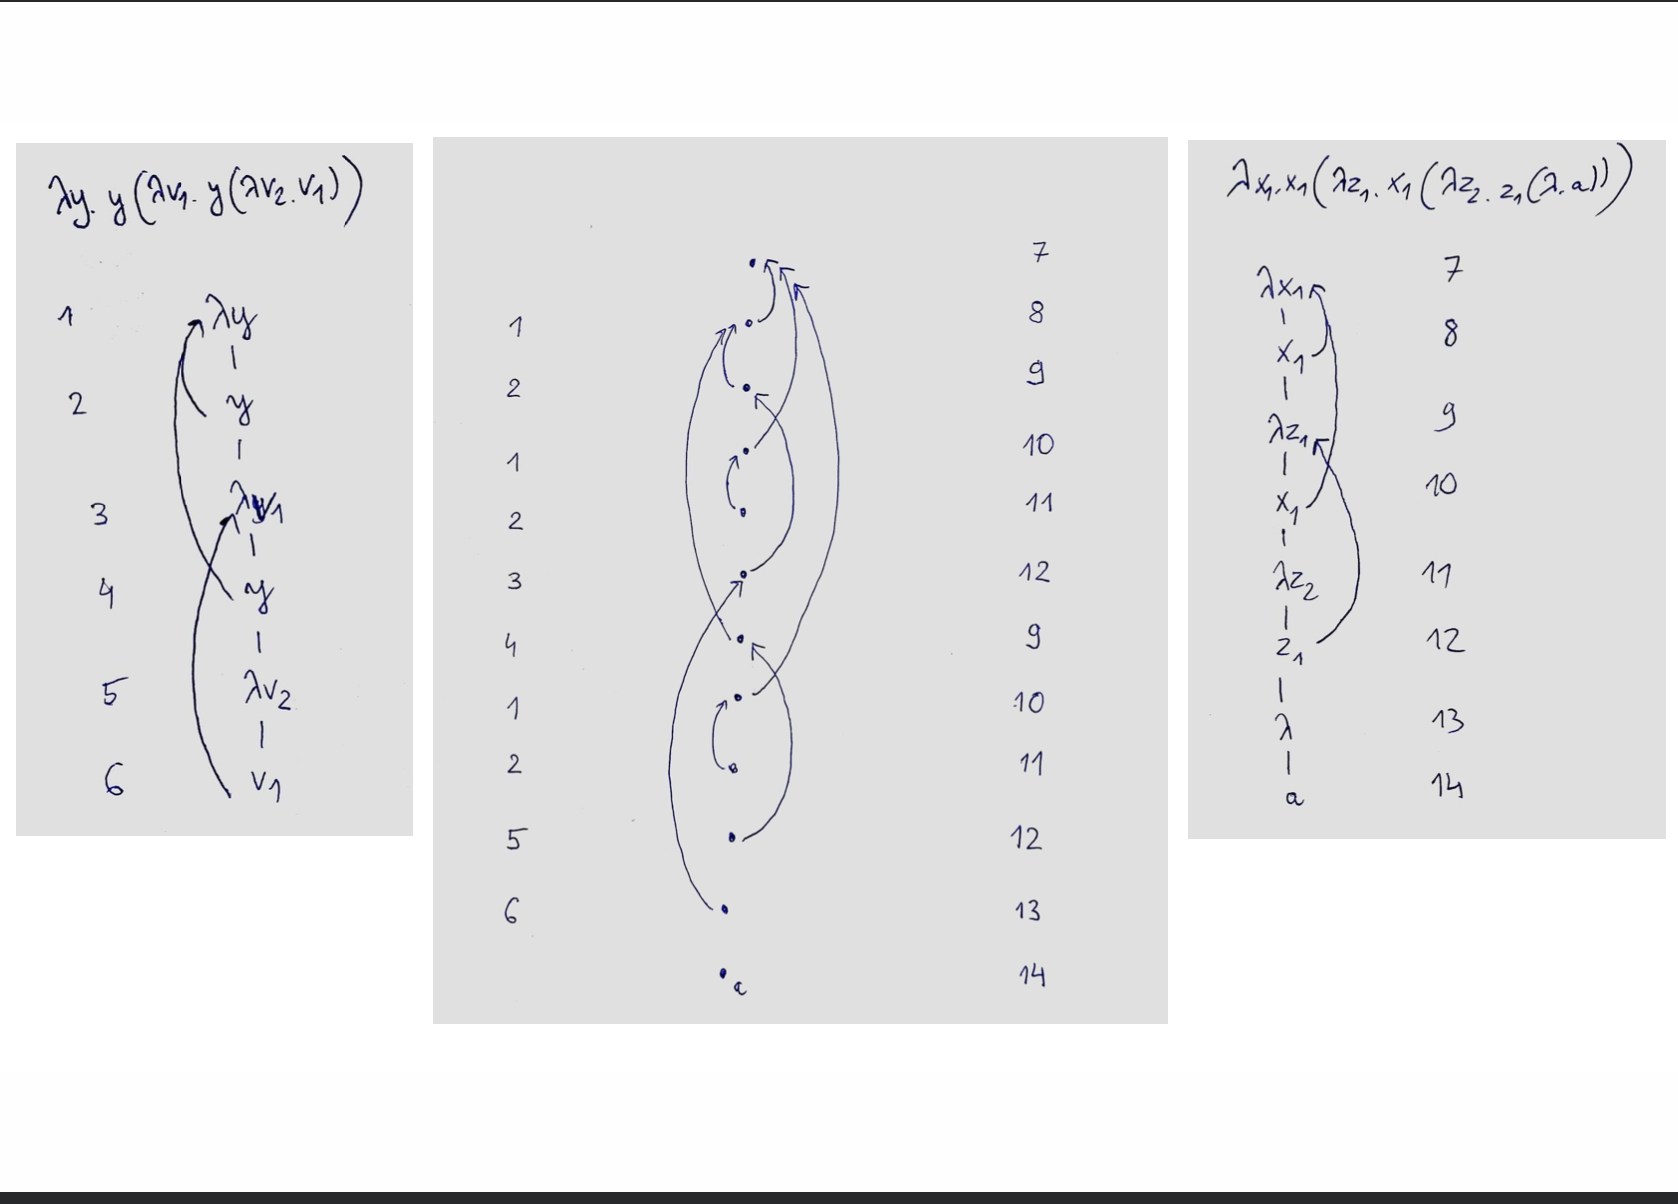 λy. y(λv₁. y(λv₂. v₁))
1 λy
2 y
3 λv₁
4 y
5 λv₂
6 v₁
7
1 8
2 9
1 10
2 11
3 12
4 9
1 10
2 11
5 12
6 13
a 14
λx₁. x₁(λz₁. x₁(λz₂. z₁(λ. a)))
λx₁ 7
x₁ 8
λz₁ 9
x₁ 10
λz₂ 11
z₁ 12
λ 13
a 14